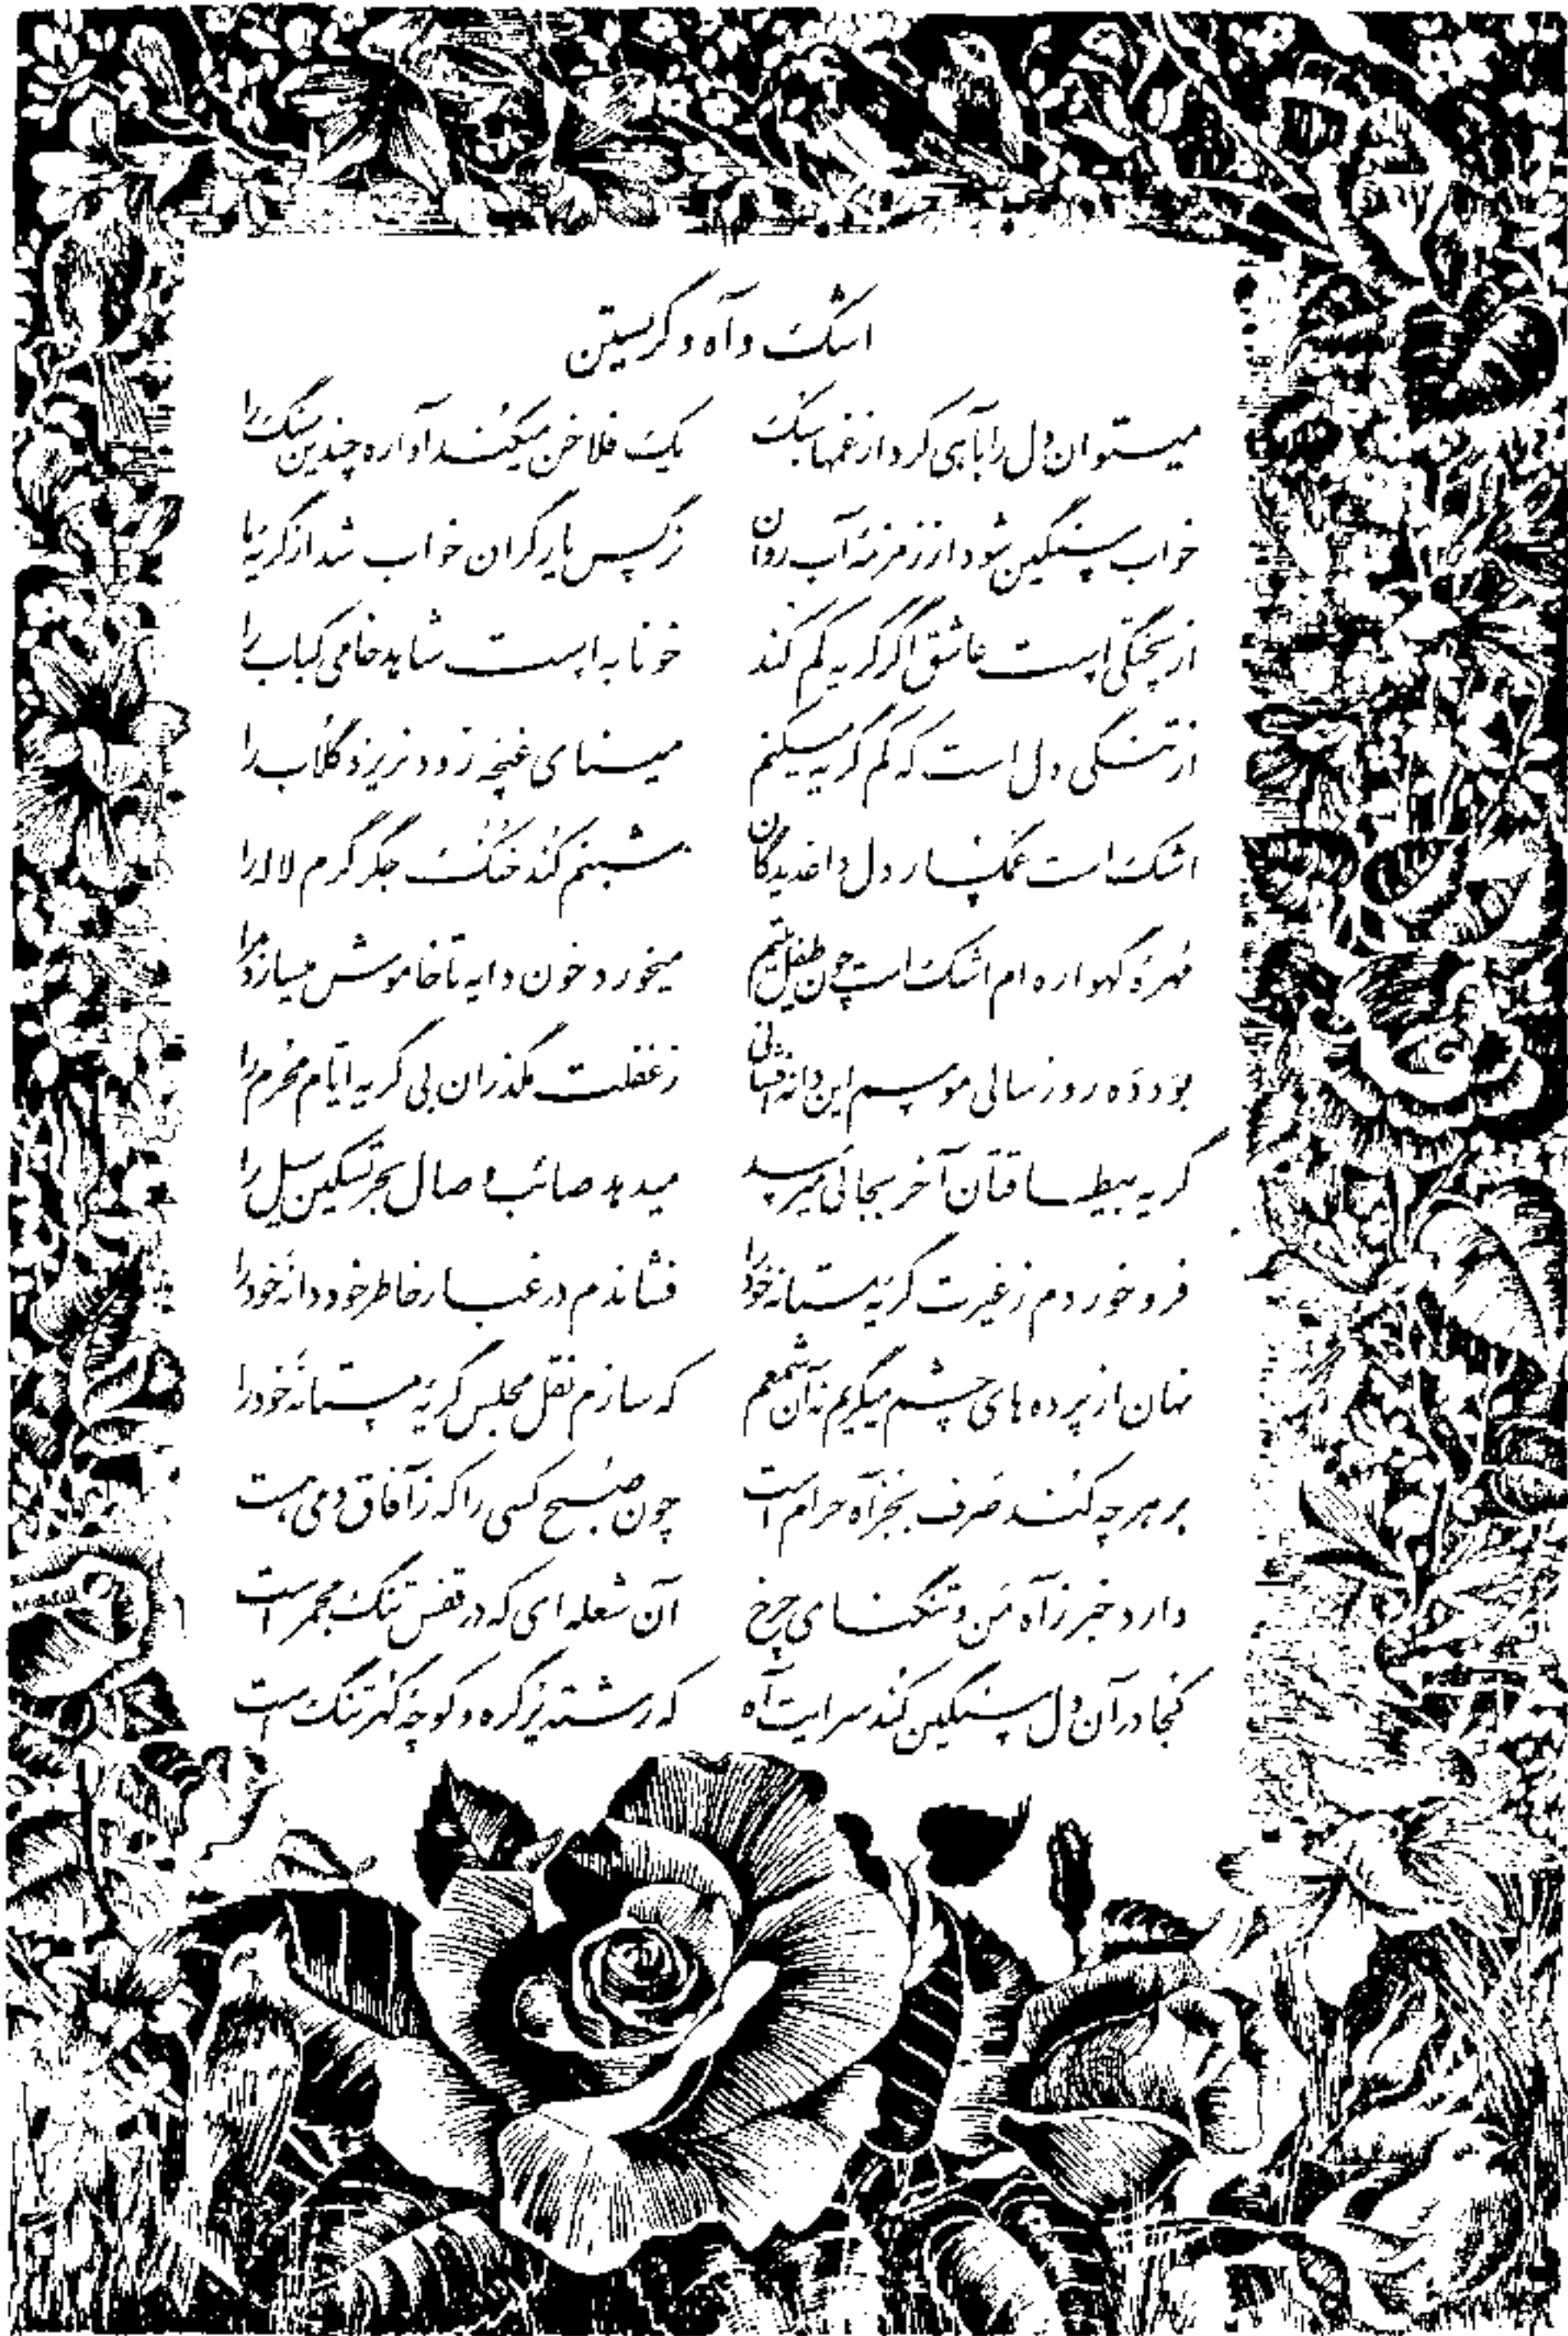 اشک و آه و گریستن
میتوان دل را بآهی کرد از غمها سبک یک فلاخن میکند آواره چندین سنگ را
خواب سنگین شود از زمزمهٔ آب روان نرگس یار گران خواب شد از گریهٔ ما
از پختگی است عاشق اگر گریه کم کند خونابه است شاهد خامی کباب را
از تنگی دل است که کم گریه میکنم مینای غنچه زود نریزد گلاب را
اشک است غمگسار دل داغدیدگان شبنم کند خنک جگر گرم لاله را
مهرهٔ گهواره ام اشک است چون طفل یتیم میخورد خون دایه تا خاموش میسازد مرا
بود ده روز سالی موسم این دانه افشانی ز غفلت مگذران بی گریه ایام محرم را
گریه بیطاقتان آخر بجائی میرسد میدهد صائب وصال بحر تسکین سیل را
فرو خوردم ز غیرت گریهٔ مستانهٔ خود را فشاندم در غبار خاطر خود دانهٔ خود را
نهان از پرده های چشم میگریم نه آن شمعم که سازم نقل مجلس گریهٔ مستانهٔ خود را
بر هرچه کند صرف بجز آه حرام است چون صبح کسی را که ز آفاق دمی هست
دارد خبر ز آه من و تنگنای چرخ آن شعله ای که در قفس تنگ مجمر است
کجا در آن دل سنگین کند سرایت آه که رشته پر گره و کوچهٔ گهر تنگ است